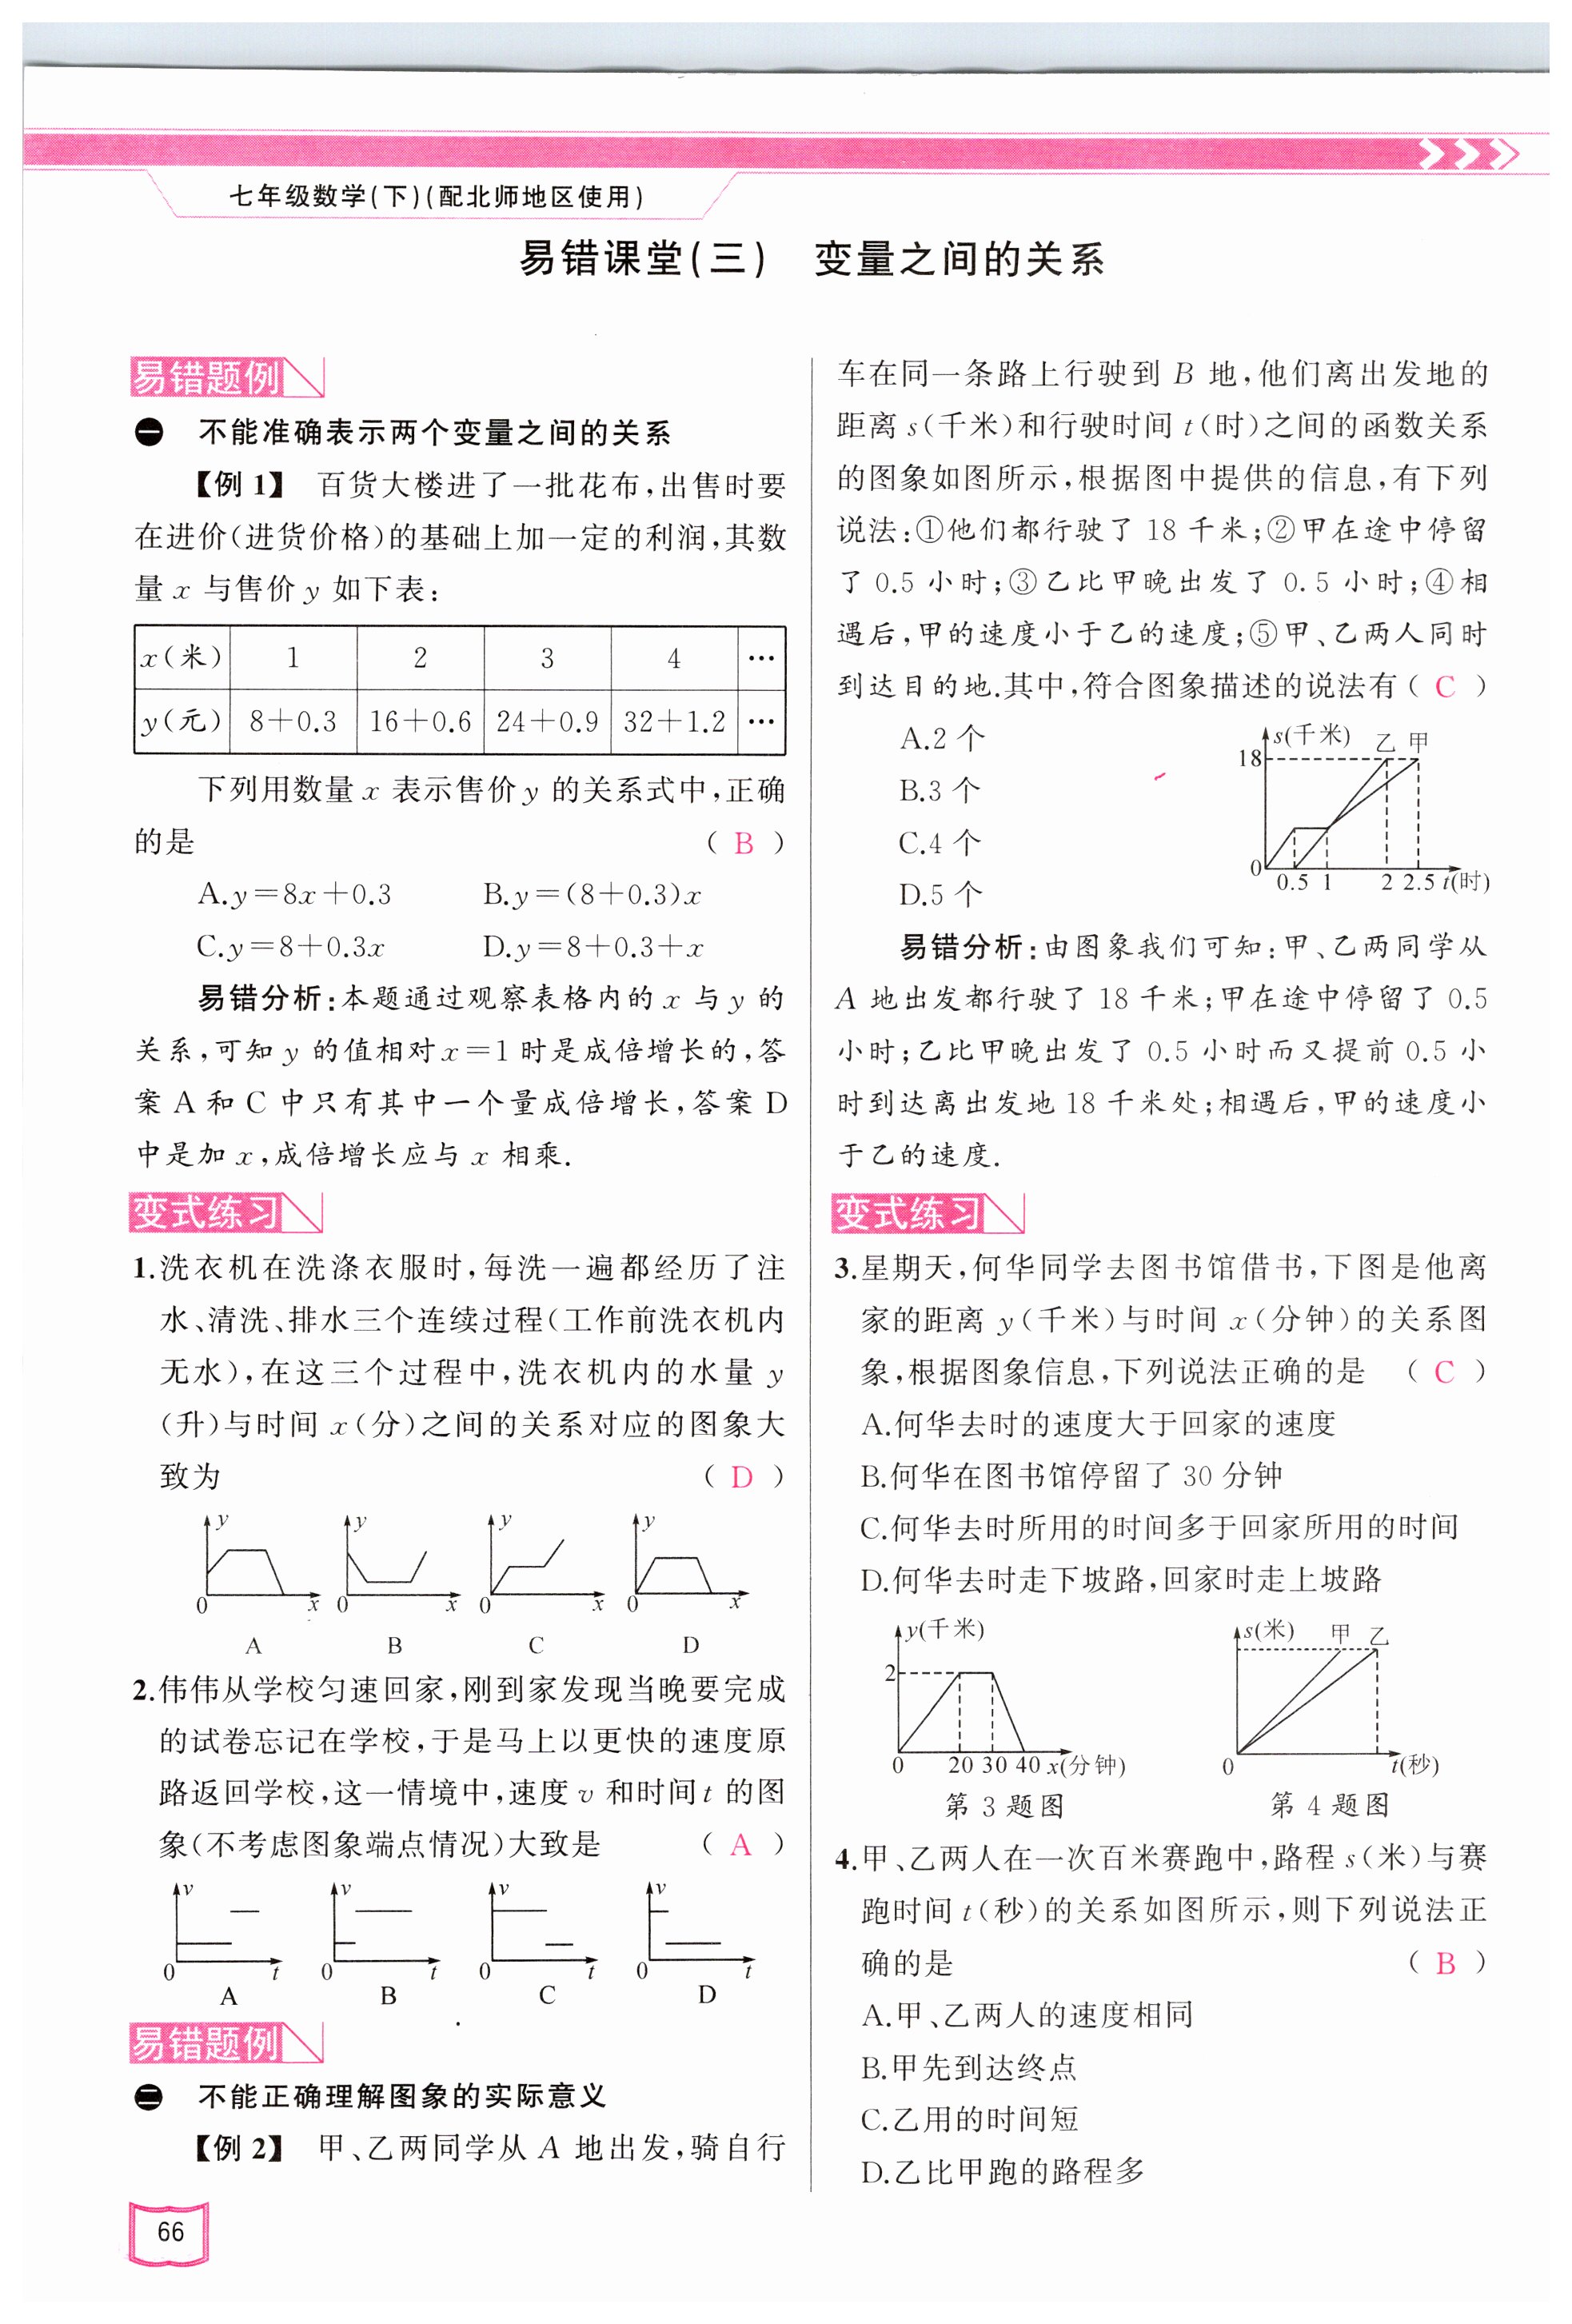 七年级数学(下)(配北师地区使用)
易错课堂(三) 变量之间的关系
易错题例
一 不能准确表示两个变量之间的关系
【例 1】 百货大楼进了一批花布,出售时要
在进价(进货价格)的基础上加一定的利润,其数
量 x 与售价 y 如下表:
x(米) 1 2 3 4 …
y(元) 8+0.3 16+0.6 24+0.9 32+1.2 …
下列用数量 x 表示售价 y 的关系式中,正确
的是 ( B )
A.y=8x+0.3 B.y=(8+0.3)x
C.y=8+0.3x D.y=8+0.3+x
易错分析:本题通过观察表格内的 x 与 y 的
关系,可知 y 的值相对 x=1 时是成倍增长的,答
案 A 和 C 中只有其中一个量成倍增长,答案 D
中是加 x,成倍增长应与 x 相乘.
变式练习
1.洗衣机在洗涤衣服时,每洗一遍都经历了注
水、清洗、排水三个连续过程(工作前洗衣机内
无水),在这三个过程中,洗衣机内的水量 y
(升)与时间 x(分)之间的关系对应的图象大
致为 ( D )
y y y y
0 x 0 x 0 x 0 x
A B C D
2.伟伟从学校匀速回家,刚到家发现当晚要完成
的试卷忘记在学校,于是马上以更快的速度原
路返回学校,这一情境中,速度 v 和时间 t 的图
象(不考虑图象端点情况)大致是 ( A )
v v v v
0 t 0 t 0 t 0 t
A B C D
易错题例
二 不能正确理解图象的实际意义
【例 2】 甲、乙两同学从 A 地出发,骑自行
66
车在同一条路上行驶到 B 地,他们离出发地的
距离 s(千米)和行驶时间 t(时)之间的函数关系
的图象如图所示,根据图中提供的信息,有下列
说法:①他们都行驶了 18 千米;②甲在途中停留
了 0.5 小时;③乙比甲晚出发了 0.5 小时;④相
遇后,甲的速度小于乙的速度;⑤甲、乙两人同时
到达目的地.其中,符合图象描述的说法有( C )
A.2 个
B.3 个
C.4 个
D.5 个
s(千米) 乙 甲
18
0 0.5 1 2 2.5 t(时)
易错分析:由图象我们可知:甲、乙两同学从
A 地出发都行驶了 18 千米;甲在途中停留了 0.5
小时;乙比甲晚出发了 0.5 小时而又提前 0.5 小
时到达离出发地 18 千米处;相遇后,甲的速度小
于乙的速度.
变式练习
3.星期天,何华同学去图书馆借书,下图是他离
家的距离 y(千米)与时间 x(分钟)的关系图
象,根据图象信息,下列说法正确的是 ( C )
A.何华去时的速度大于回家的速度
B.何华在图书馆停留了 30 分钟
C.何华去时所用的时间多于回家所用的时间
D.何华去时走下坡路,回家时走上坡路
y(千米)
2
0 20 30 40 x(分钟)
第 3 题图
s(米) 甲 乙
0 t(秒)
第 4 题图
4.甲、乙两人在一次百米赛跑中,路程 s(米)与赛
跑时间 t(秒)的关系如图所示,则下列说法正
确的是 ( B )
A.甲、乙两人的速度相同
B.甲先到达终点
C.乙用的时间短
D.乙比甲跑的路程多